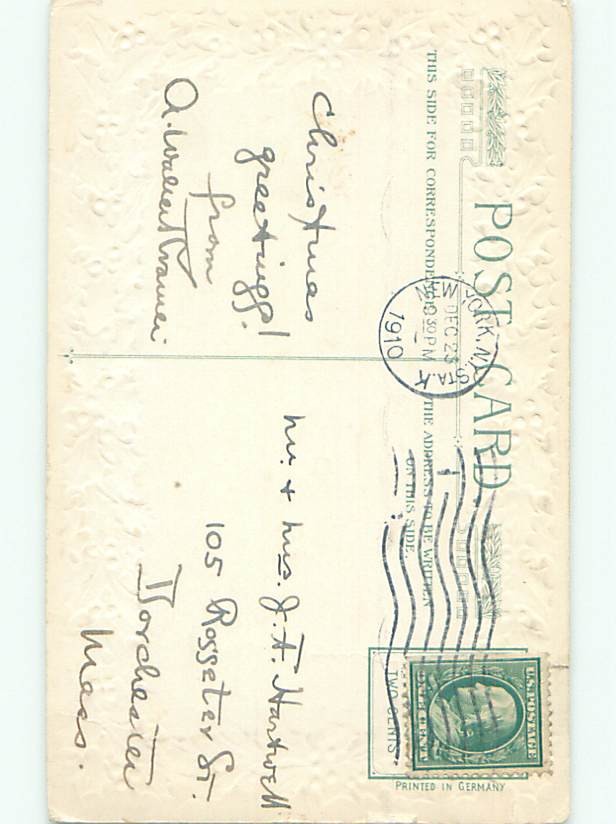 POST CARD
THIS SIDE FOR CORRESPONDENCE
THE ADDRESS TO BE WRITTEN
ON THIS SIDE.
NEW YORK, N.Y. STA. K
DEC 23
10 30 PM
1910
U.S. POSTAGE
ONE CENT
TWO CENTS
PRINTED IN GERMANY
Christmas
greetings!
from
A. Walter
Mr. & Mrs. J. A. Hartwell
105 Rosseter St.
Dorchester
Mass.